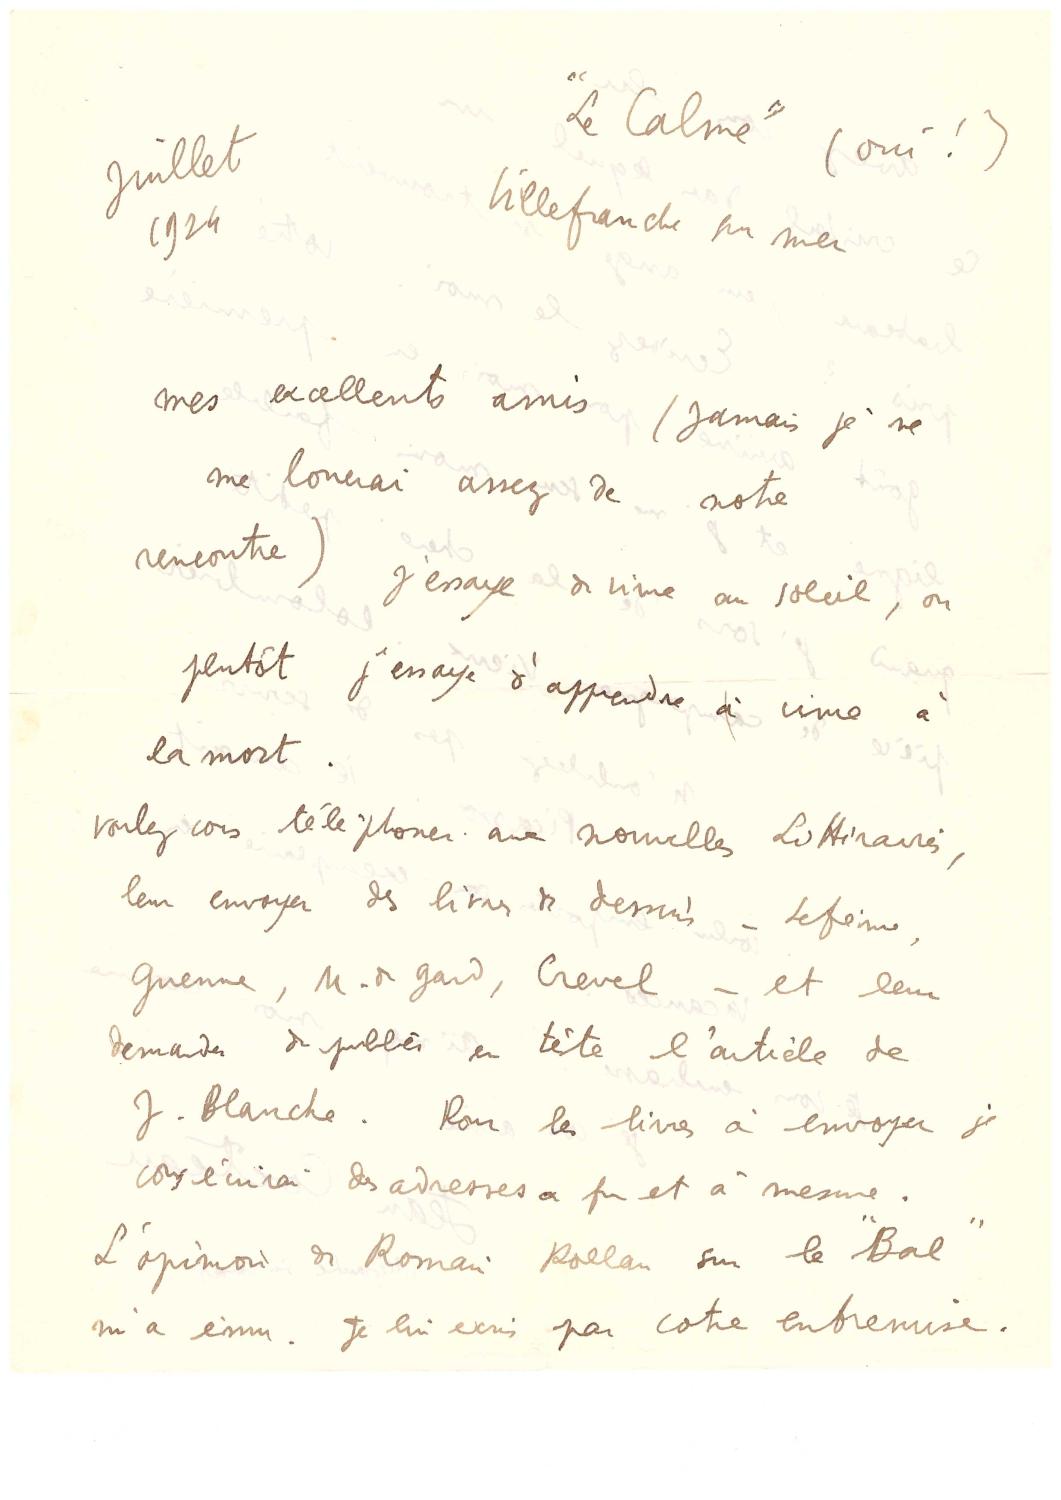 "Le Calme" (oui !)
Juillet
1924
Villefranche sur mer
mes excellents amis (Jamais je ne
me louerai assez de notre
rencontre) J'essaye de vivre au soleil, ou
plutôt j'essaye d'apprendre à vivre à
la mort.
voulez vous téléphoner aux nouvelles Littéraires,
leur envoyer des livres de dessins – Lefèvre,
Guenne, M. du Gard, Crevel – et leur
demander de publier en tête l'article de
J. Blanche. Pour les livres à envoyer je
vous écrirai des adresses a fur et à mesure.
L'opinion de Romain Rollan sur le "Bal"
m'a ému. Je lui ecris par votre entremise.